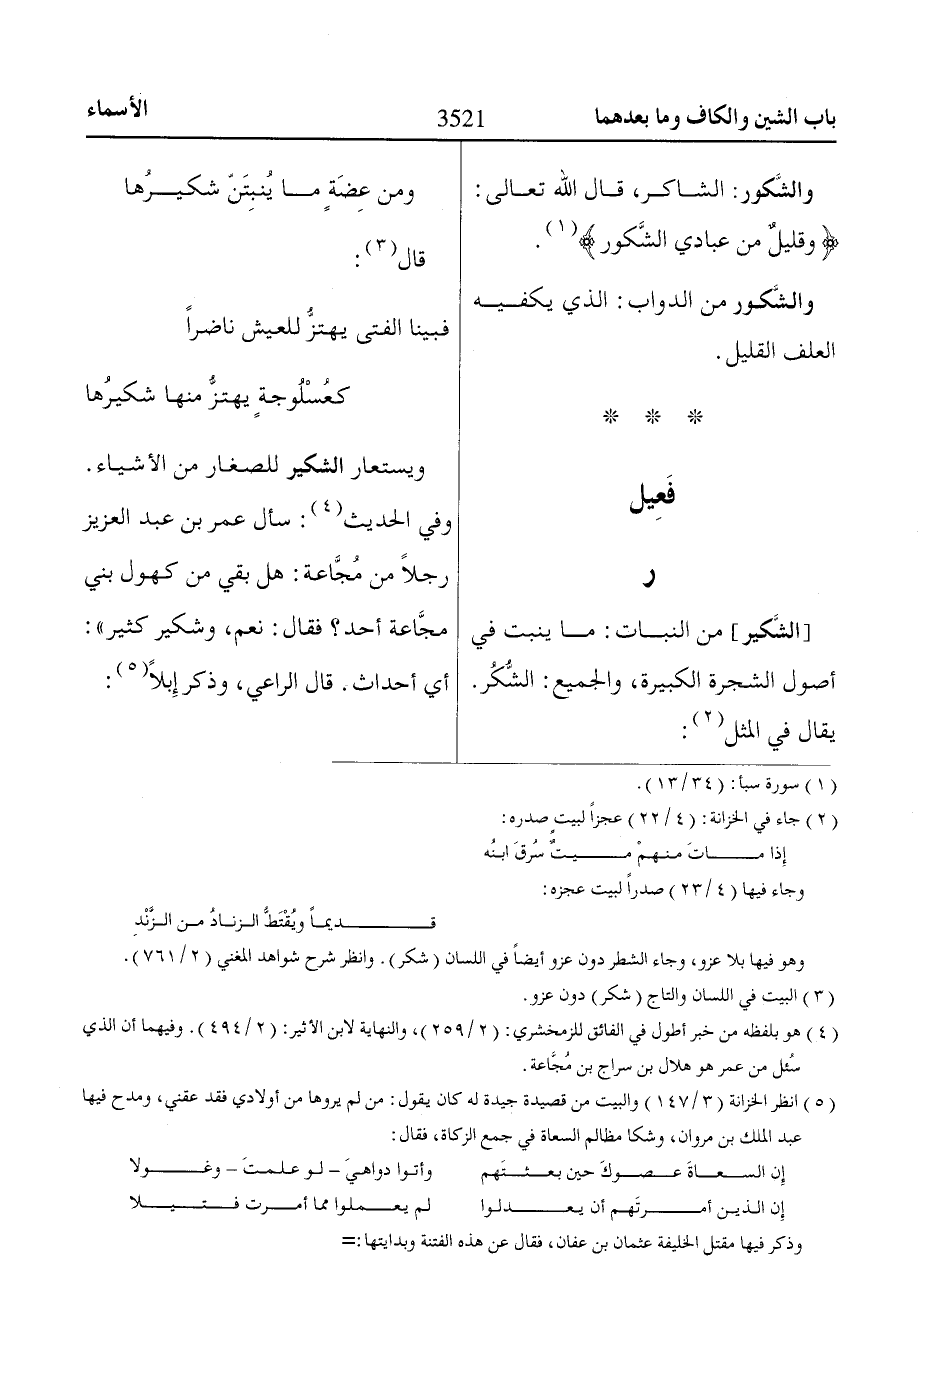 باب الشين والكاف وما بعدهما
3521
الأسماء
والشَّكور: الشاكر، قال الله تعالى:
﴿وقليلٌ من عبادي الشَّكور﴾(١).
والشَّكور من الدواب: الذي يكفيه
العلف القليل.
* * *
فَعِيل
ر
[الشَّكير] من النبات: ما ينبت في
أصول الشجرة الكبيرة، والجميع: الشُّكُر.
يقال في المثل(٢):
ومن عِضَةٍ ما يُنبتَنّ شكيرُها
قال(٣):
فبينا الفتى يهتزُّ للعيش ناضراً
كعُسْلُوجةٍ يهتزُّ منها شكيرُها
ويستعار الشكير للصغار من الأشياء.
وفي الحديث(٤): سأل عمر بن عبد العزيز
رجلاً من مُجَّاعة: هل بقي من كهول بني
مجَّاعة أحد؟ فقال: نعم، وشكير كثير»:
أي أحداث. قال الراعي، وذكر إبلاً(٥):
(١) سورة سبأ: (١٣/٣٤).
(٢) جاء في الخزانة: (٢٢/٤) عجزاً لبيت صدره:
إذا مات منهمْ ميتٌ سُرقَ ابنُه
وجاء فيها (٢٣/٤) صدراً لبيت عجزه:
قديماً ويُقْتَطُّ الزنادُ من الزَّنْد
وهو فيها بلا عزو، وجاء الشطر دون عزو أيضاً في اللسان (شكر). وانظر شرح شواهد المغني (٧٦١/٢).
(٣) البيت في اللسان والتاج (شكر) دون عزو.
(٤) هو بلفظه من خبر أطول في الفائق للزمخشري: (٢٥٩/٢)، والنهاية لابن الأثير: (٤٩٤/٢). وفيهما أن الذي
سُئل من عمر هو هلال بن سراج بن مُجَّاعة.
(٥) انظر الخزانة (١٤٧/٣) والبيت من قصيدة جيدة له كان يقول: من لم يروها من أولادي فقد عقني، ومدح فيها
عبد الملك بن مروان، وشكا مظالم السعاة في جمع الزكاة، فقال:
إن السعاةَ عصوكَ حين بعثتَهم وأتوا دواهيَ - لو علمتَ - وغولا
إن الذين أمرتَهم أن يعدلوا لم يعملوا مما أمرت فتيلا
وذكر فيها مقتل الخليفة عثمان بن عفان، فقال عن هذه الفتنة وبدايتها:=